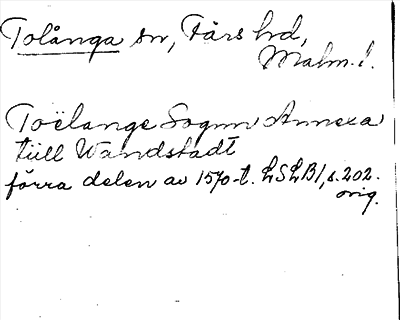 Tolånga sn, Färs hd,
Malm. l.
Toëlange Sognn Annexa
tiill Wandstadt
förra delen av 1570-t. LSLB1, s. 202.
orig.